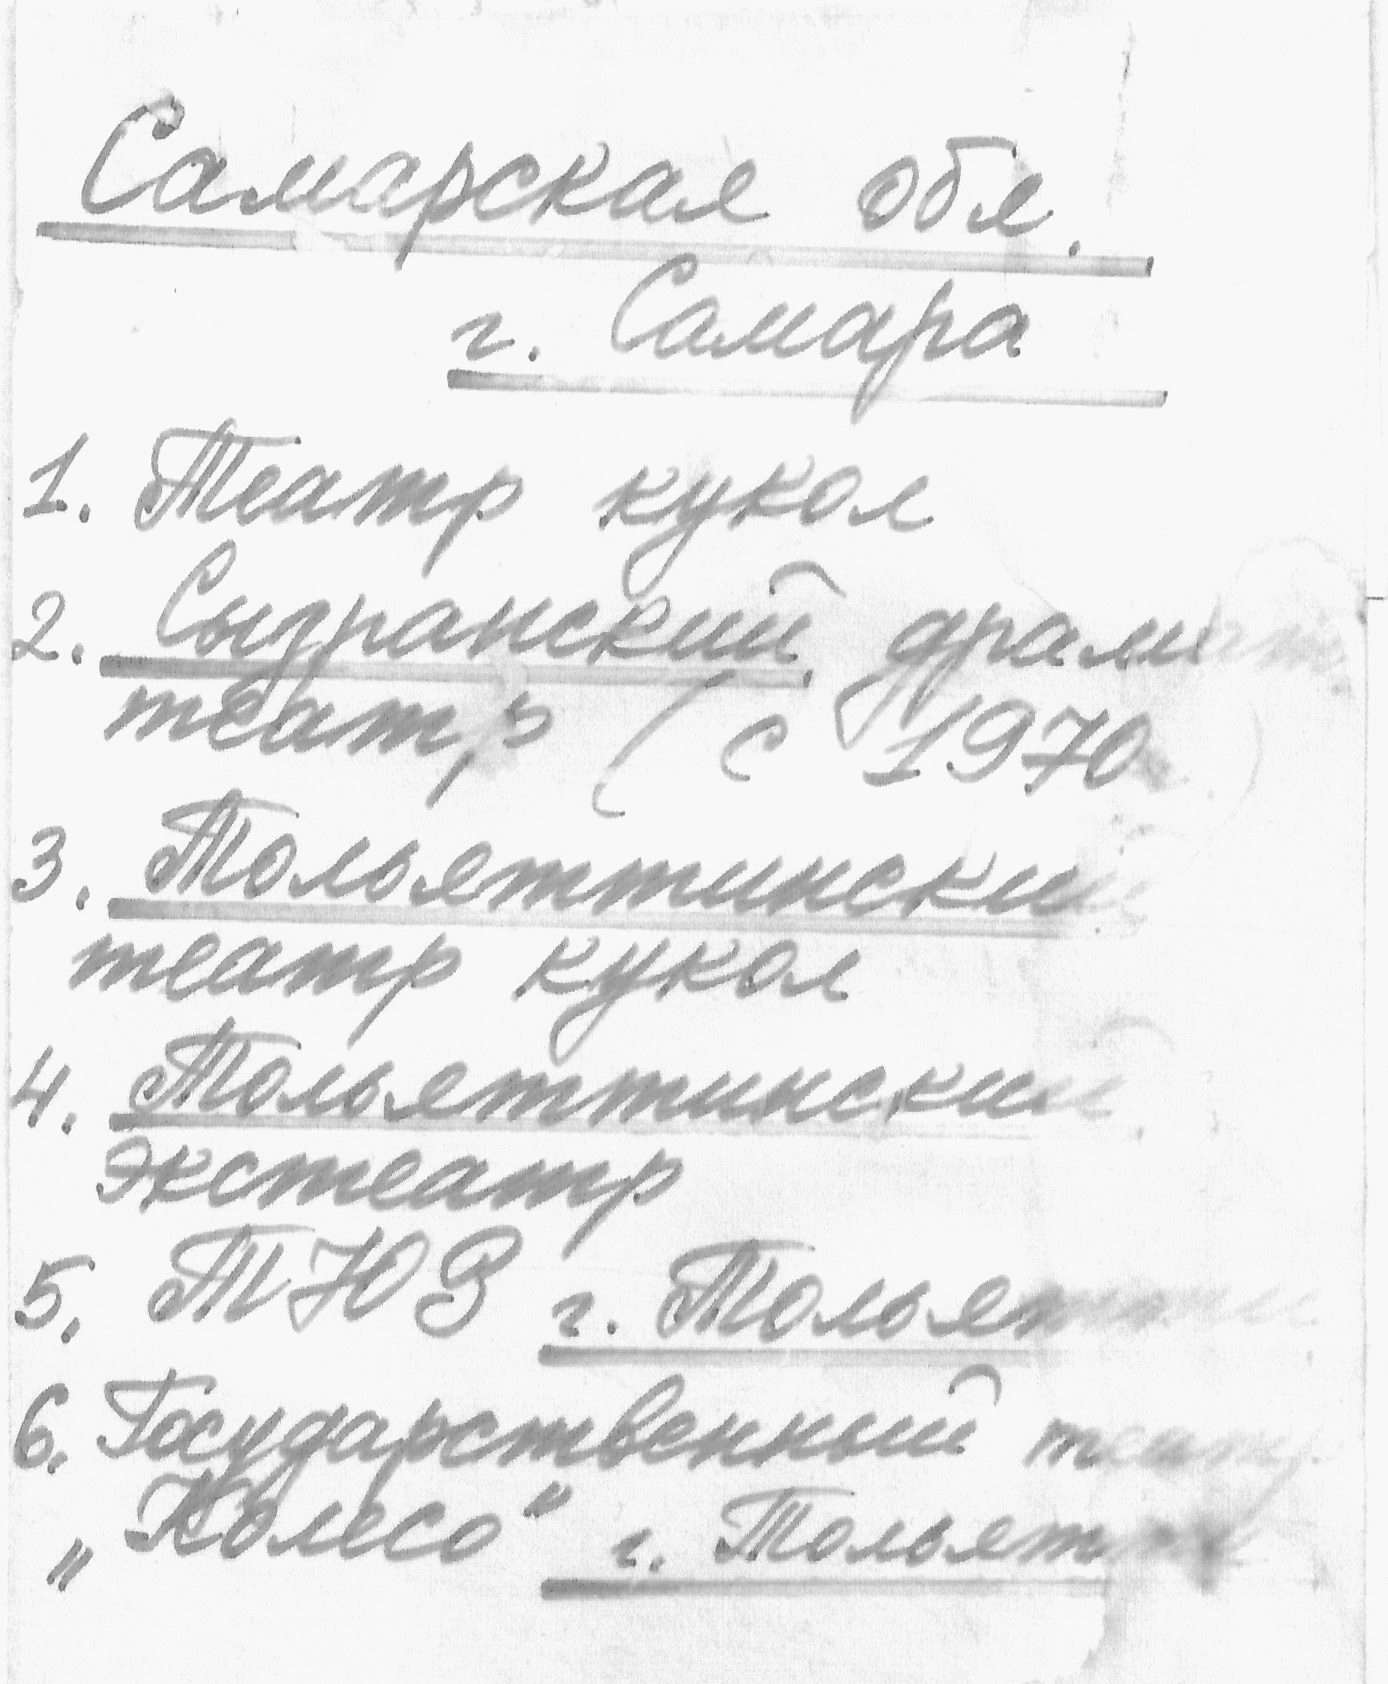 Самарская обл.
г. Самара
1. Театр кукол
2. Сызранский драмат.
театр (с 1970г.)
3. Тольяттинский
театр кукол
4. Тольяттинский
экстеатр
5. ТЮЗ г. Тольятти
6. Государственный театр
„Колесо" г. Тольятти